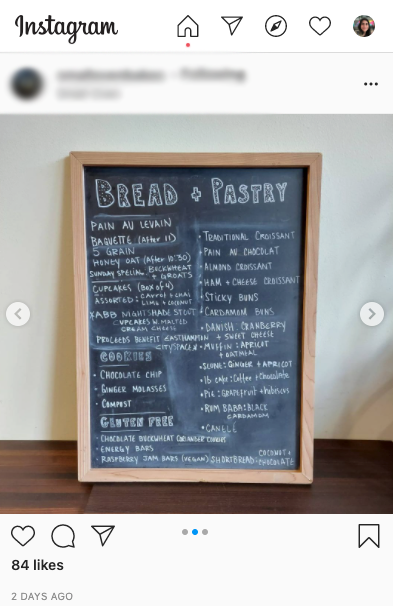 Instagram
BREAD + PASTRY
PAIN AU LEVAIN
BAGUETTE (After 11)
5 GRAIN
HONEY OAT (After 10:30)
SUNDAY SPECIAL: BUCKWHEAT + GROATS
CUPCAKES (Box of 4)
ASSORTED: CARROT + CHAI
LIME + COCONUT
XABB NIGHTSHADE STOUT
CUPCAKES W. MALTED
CREAM CHEESE
PROCEEDS BENEFIT EASTHAMPTON
CITYSPACE
COOKIES
• CHOCOLATE CHIP
• GINGER MOLASSES
• COMPOST
GLUTEN FREE
• CHOCOLATE BUCKWHEAT CORIANDER COOKIES
• ENERGY BARS
• RASPBERRY JAM BARS (VEGAN)
• TRADITIONAL CROISSANT
• PAIN AU CHOCOLAT
• ALMOND CROISSANT
• HAM + CHEESE CROISSANT
• STICKY BUNS
• CARDAMOM BUNS
• DANISH: CRANBERRY
• MUFFIN: APRICOT
+ OATMEAL
• SCONE: GINGER + APRICOT
• Cake: Coffee + Chocolate
• PIE: GRAPEFRUIT + hibiscus
• RUM BABA: BLACK
CARDAMOM
• CANELÉ
SHORTBREAD: COCONUT +
CHOCOLATE
84 likes
2 DAYS AGO